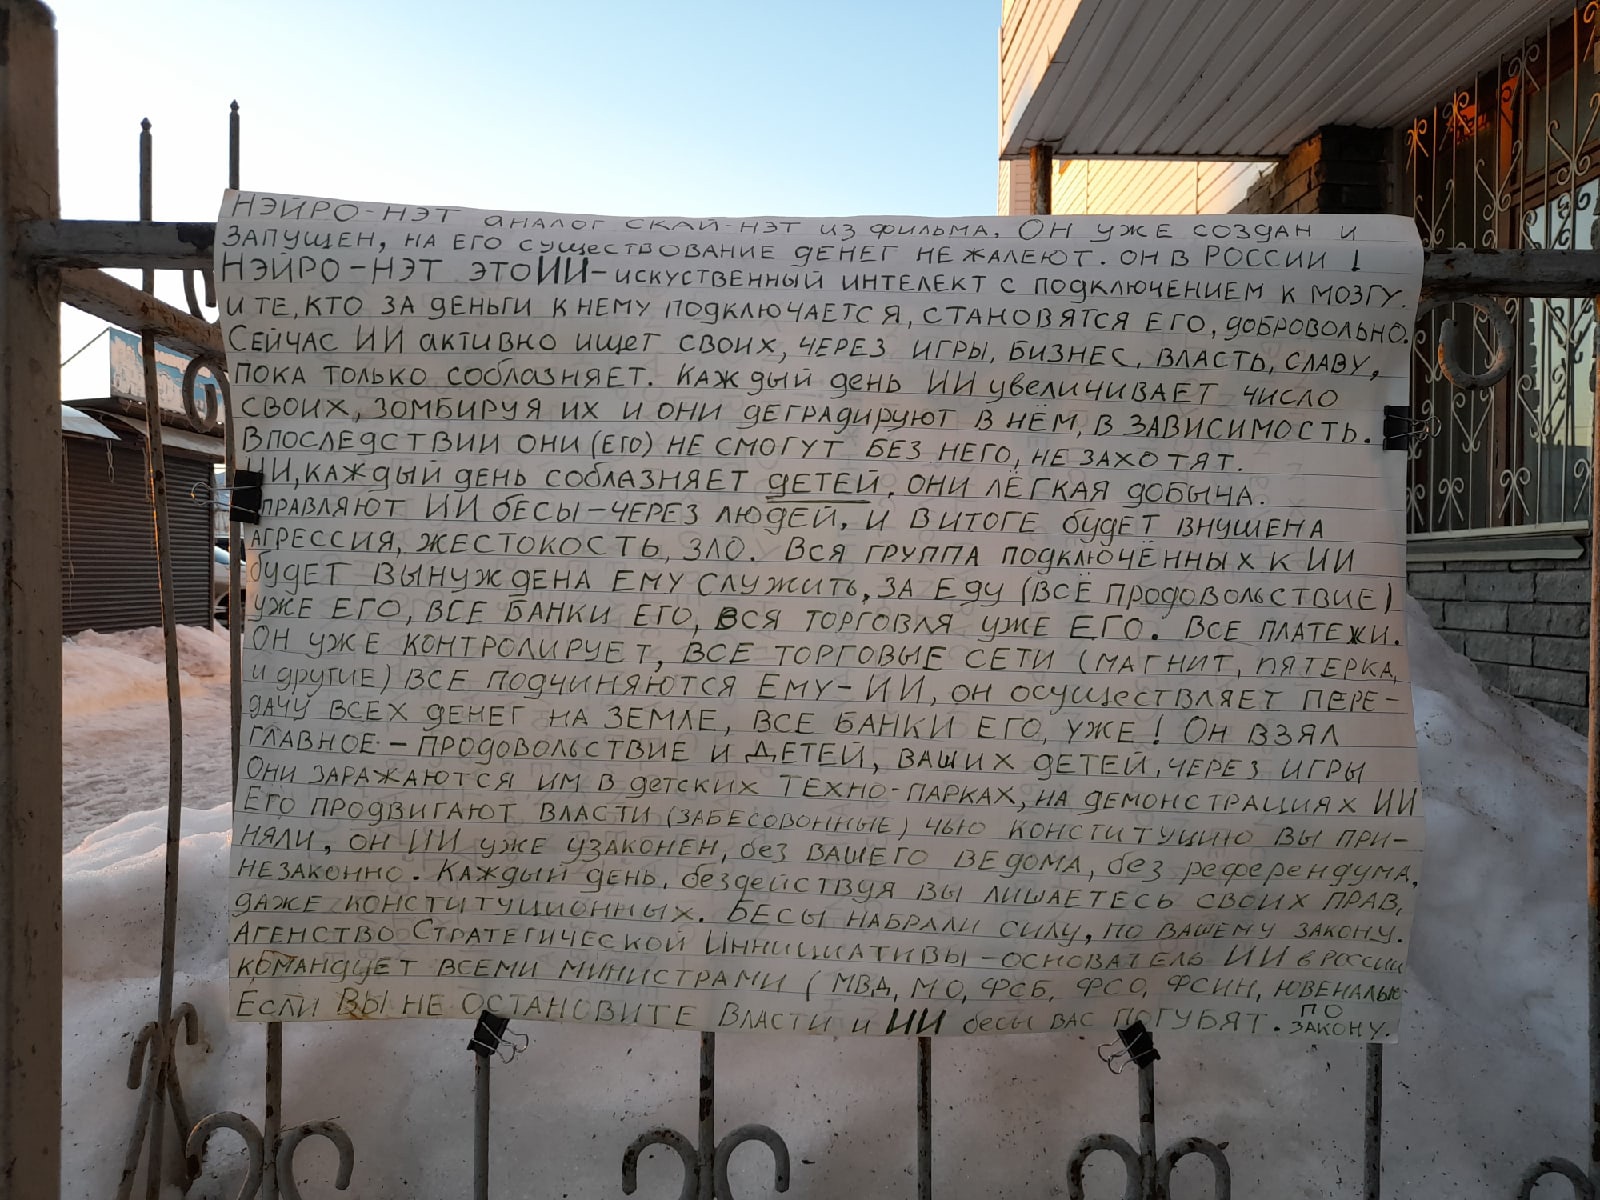 НЭЙРО-НЭТ АНАЛОГ СКАЙ-НЭТ ИЗ ФИЛЬМА. ОН УЖЕ СОЗДАН И
ЗАПУЩЕН, НА ЕГО СУЩЕСТВОВАНИЕ ДЕНЕГ НЕ ЖАЛЕЮТ. ОН В РОССИИ !
НЭЙРО-НЭТ ЭТО ИИ-ИСКУСТВЕННЫЙ ИНТЕЛЕКТ С ПОДКЛЮЧЕНИЕМ К МОЗГУ.
И ТЕ, КТО ЗА ДЕНЬГИ К НЕМУ ПОДКЛЮЧАЕТСЯ, СТАНОВЯТСЯ ЕГО, ДОБРОВОЛЬНО.
СЕЙЧАС ИИ АКТИВНО ИЩЕТ СВОИХ, ЧЕРЕЗ ИГРЫ, БИЗНЕС, ВЛАСТЬ, СЛАВУ,
ПОКА ТОЛЬКО СОБЛАЗНЯЕТ. КАЖДЫЙ ДЕНЬ ИИ УВЕЛИЧИВАЕТ ЧИСЛО
СВОИХ, ЗОМБИРУЯ ИХ И ОНИ ДЕГРАДИРУЮТ В НЁМ, В ЗАВИСИМОСТЬ.
ВПОСЛЕДСТВИИ ОНИ (ЕГО) НЕ СМОГУТ БЕЗ НЕГО, НЕ ЗАХОТЯТ.
ИИ, КАЖДЫЙ ДЕНЬ СОБЛАЗНЯЕТ ДЕТЕЙ, ОНИ ЛЁГКАЯ ДОБЫЧА.
ПРАВЛЯЮТ ИИ БЕСЫ-ЧЕРЕЗ ЛЮДЕЙ, И В ИТОГЕ БУДЕТ ВНУШЕНА
АГРЕССИЯ, ЖЕСТОКОСТЬ, ЗЛО. ВСЯ ГРУППА ПОДКЛЮЧЁННЫХ К ИИ
БУДЕТ ВЫНУЖДЕНА ЕМУ СЛУЖИТЬ, ЗА ЕДУ (ВСЁ ПРОДОВОЛЬСТВИЕ)
УЖЕ ЕГО, ВСЕ БАНКИ ЕГО, ВСЯ ТОРГОВЛЯ УЖЕ ЕГО. ВСЕ ПЛАТЕЖИ.
ОН УЖЕ КОНТРОЛИРУЕТ, ВСЕ ТОРГОВЫЕ СЕТИ (МАГНИТ, ПЯТЕРКА,
И ДРУГИЕ) ВСЕ ПОДЧИНЯЮТСЯ ЕМУ-ИИ, ОН ОСУЩЕСТВЛЯЕТ ПЕРЕ-
ДАЧУ ВСЕХ ДЕНЕГ НА ЗЕМЛЕ, ВСЕ БАНКИ ЕГО, УЖЕ! ОН ВЗЯЛ
ГЛАВНОЕ - ПРОДОВОЛЬСТВИЕ И ДЕТЕЙ, ВАШИХ ДЕТЕЙ, ЧЕРЕЗ ИГРЫ
ОНИ ЗАРАЖАЮТСЯ ИМ В ДЕТСКИХ ТЕХНО-ПАРКАХ, НА ДЕМОНСТРАЦИЯХ ИИ
ЕГО ПРОДВИГАЮТ ВЛАСТИ (ЗАБЕСОВОННЫЕ) ЧЬЮ КОНСТИТУЦИЮ ВЫ ПРИ-
НЯЛИ, ОН ИИ УЖЕ УЗАКОНЕН, БЕЗ ВАШЕГО ВЕДОМА, БЕЗ РЕФЕРЕНДУМА,
НЕЗАКОННО. КАЖДЫЙ ДЕНЬ, БЕЗДЕЙСТВУЯ ВЫ ЛИШАЕТЕСЬ СВОИХ ПРАВ,
ДАЖЕ КОНСТИТУЦИОННЫХ. БЕСЫ НАБРАЛИ СИЛУ, ПО ВАШЕМУ ЗАКОНУ.
АГЕНСТВО СТРАТЕГИЧЕСКОЙ ИННИЦИАТИВЫ-ОСНОВАТЕЛЬ ИИ В РОССИИ
КОМАНДУЕТ ВСЕМИ МИНИСТРАМИ (МВД, МО, ФСБ, ФСО, ФСИН, ЮВЕНАЛЬЮ
ЕСЛИ ВЫ НЕ ОСТАНОВИТЕ ВЛАСТИ И ИИ БЕСЫ ВАС ПОГУБЯТ. ПО ЗАКОНУ.